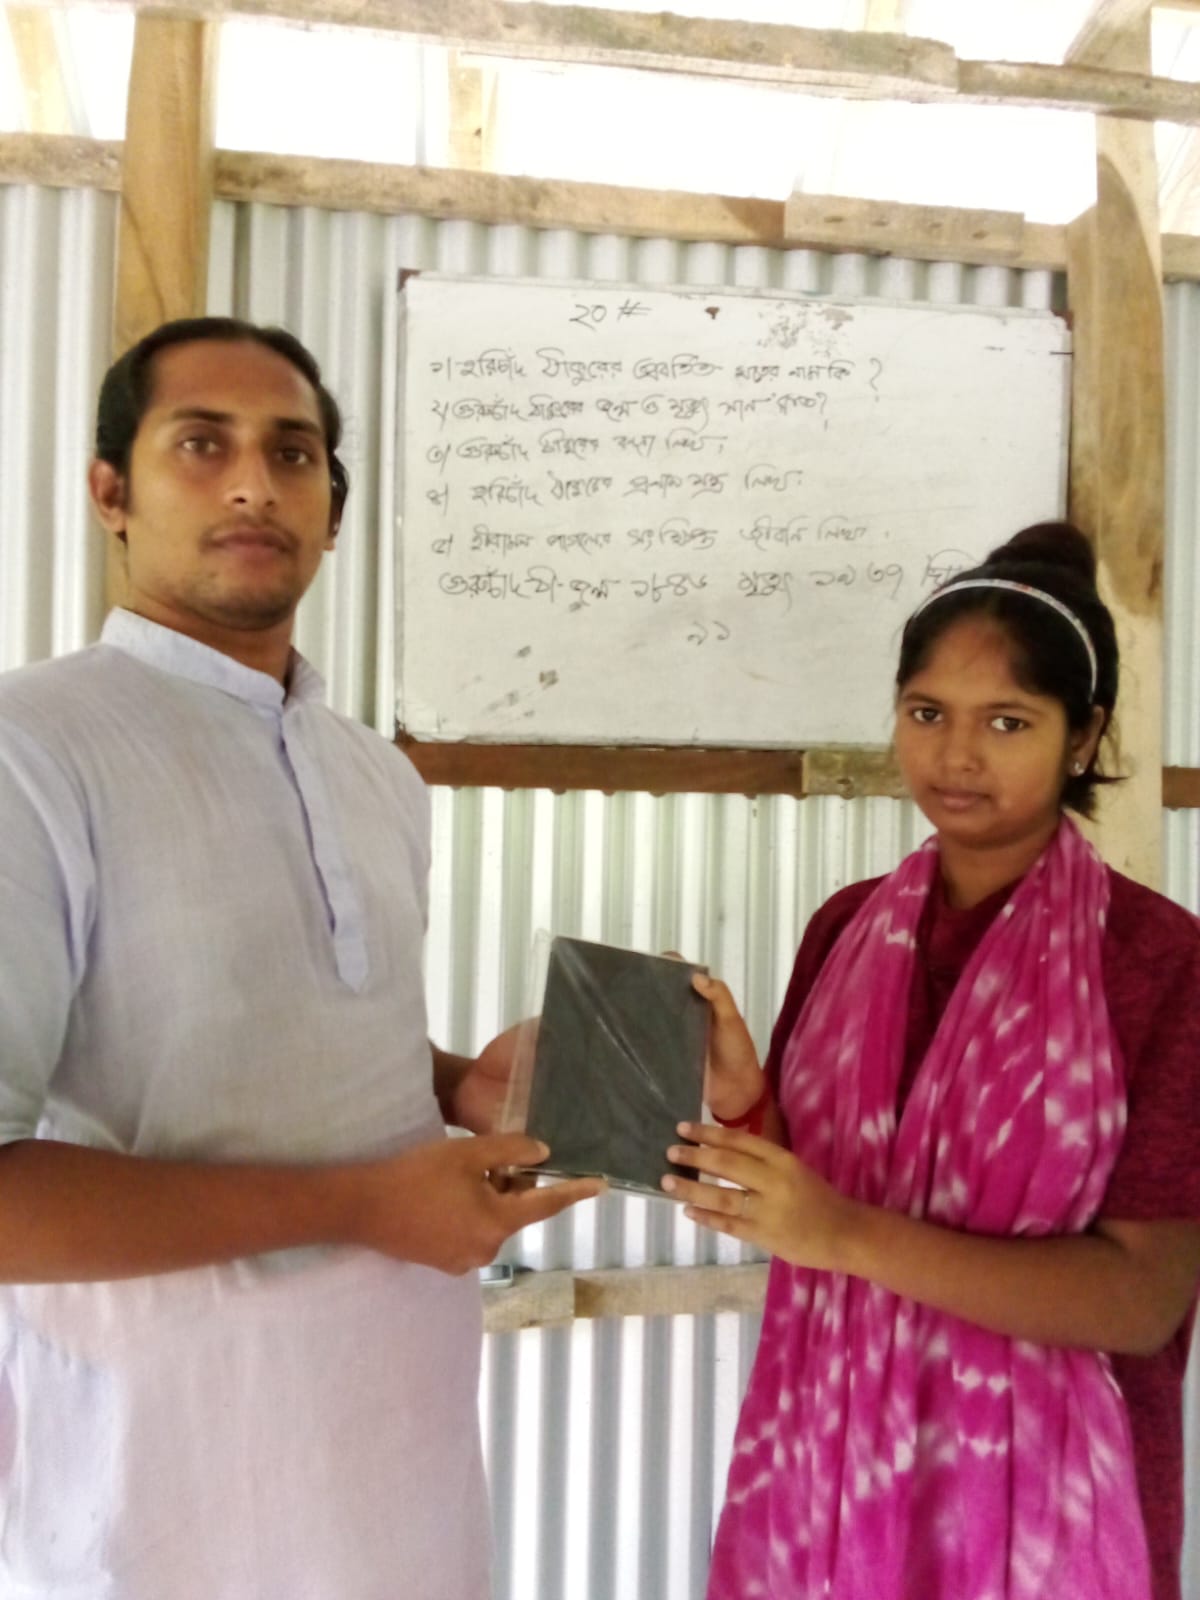 ২০ #
১। হরিচাঁদ ঠাকুরের প্রবর্তিত মতের নাম কি ?
২। গুরুচাঁদ ঠাকুরের জন্ম ও মৃত্যু সাল লিখ?
৩। গুরুচাঁদ ঠাকুরের বন্দনা লিখ।
৪। হরিচাঁদ ঠাকুরের প্রণাম মন্ত্র লিখ।
৫। হীরামন পাগলের সংক্ষিপ্ত জীবনি লিখ।
গুরুচাঁদ ঠা- জন্ম ১৮৪৬ মৃত্যু ১৯৩৭
৯১